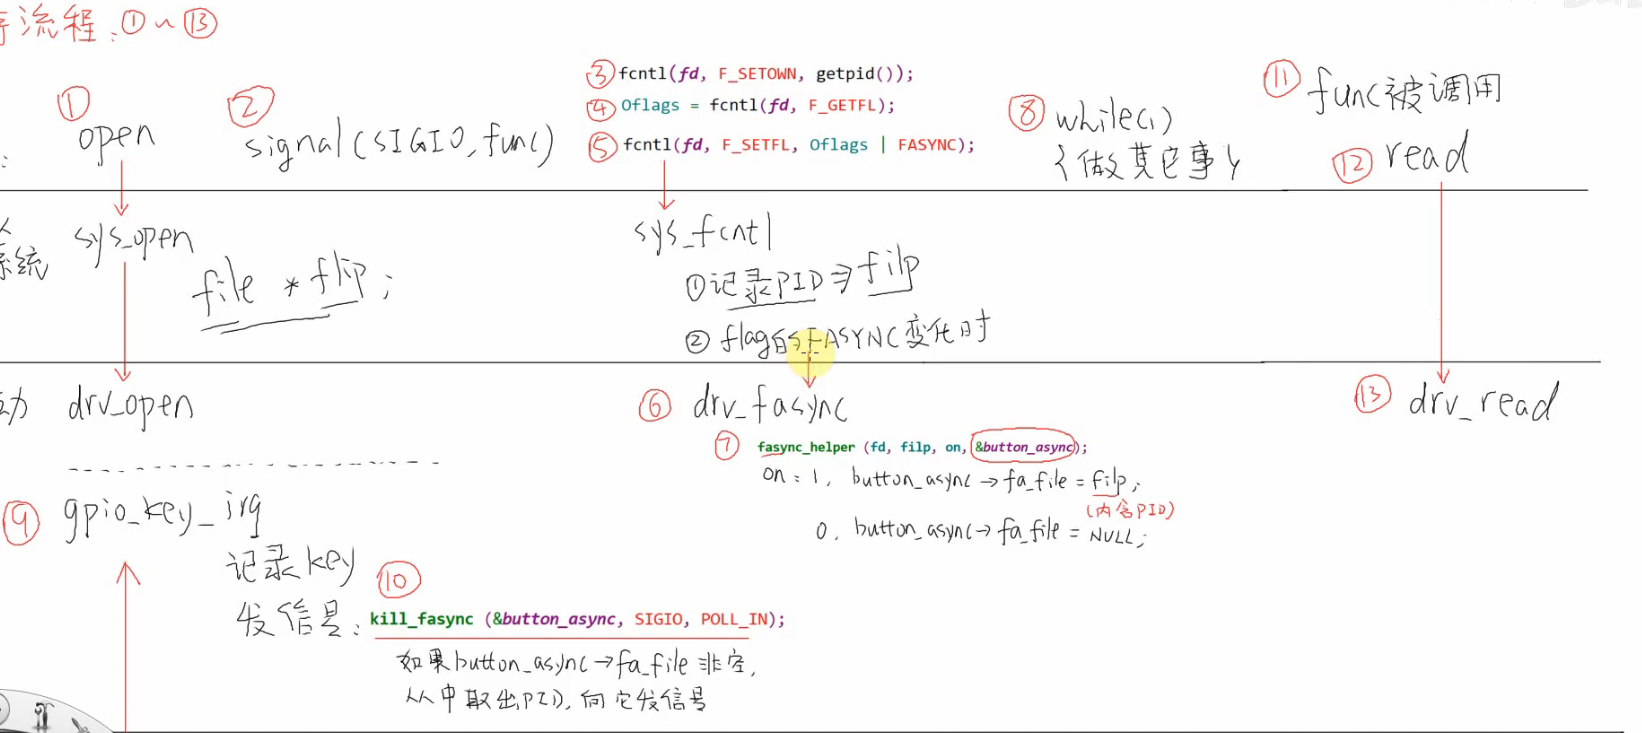 流程:①~⑬
③fcntl(fd, F_SETOWN, getpid());
④Oflags = fcntl(fd, F_GETFL);
⑤fcntl(fd, F_SETFL, Oflags | FASYNC);
①
open
②
signal(SIGIO,func)
⑧ while(1)
{做其它事}
⑪ func被调用
⑫ read
:
系统
sys_open
file * flip;
sys_fcntl
①记录PID∋filp
②flag的FASYNC变化时
动
drv_open
⑥ drv_fasync
⑦ fasync_helper (fd, filp, on, &button_async);
on:1, button_async→fa_file=filp;
(内含PID)
0. button_async→fa_file=NULL;
⑬ drv_read
⑨ gpio_key_irq
记录key
⑩
发信号: kill_fasync (&button_async, SIGIO, POLL_IN);
如果button_async→fa_file非空,
从中取出PID,向它发信号